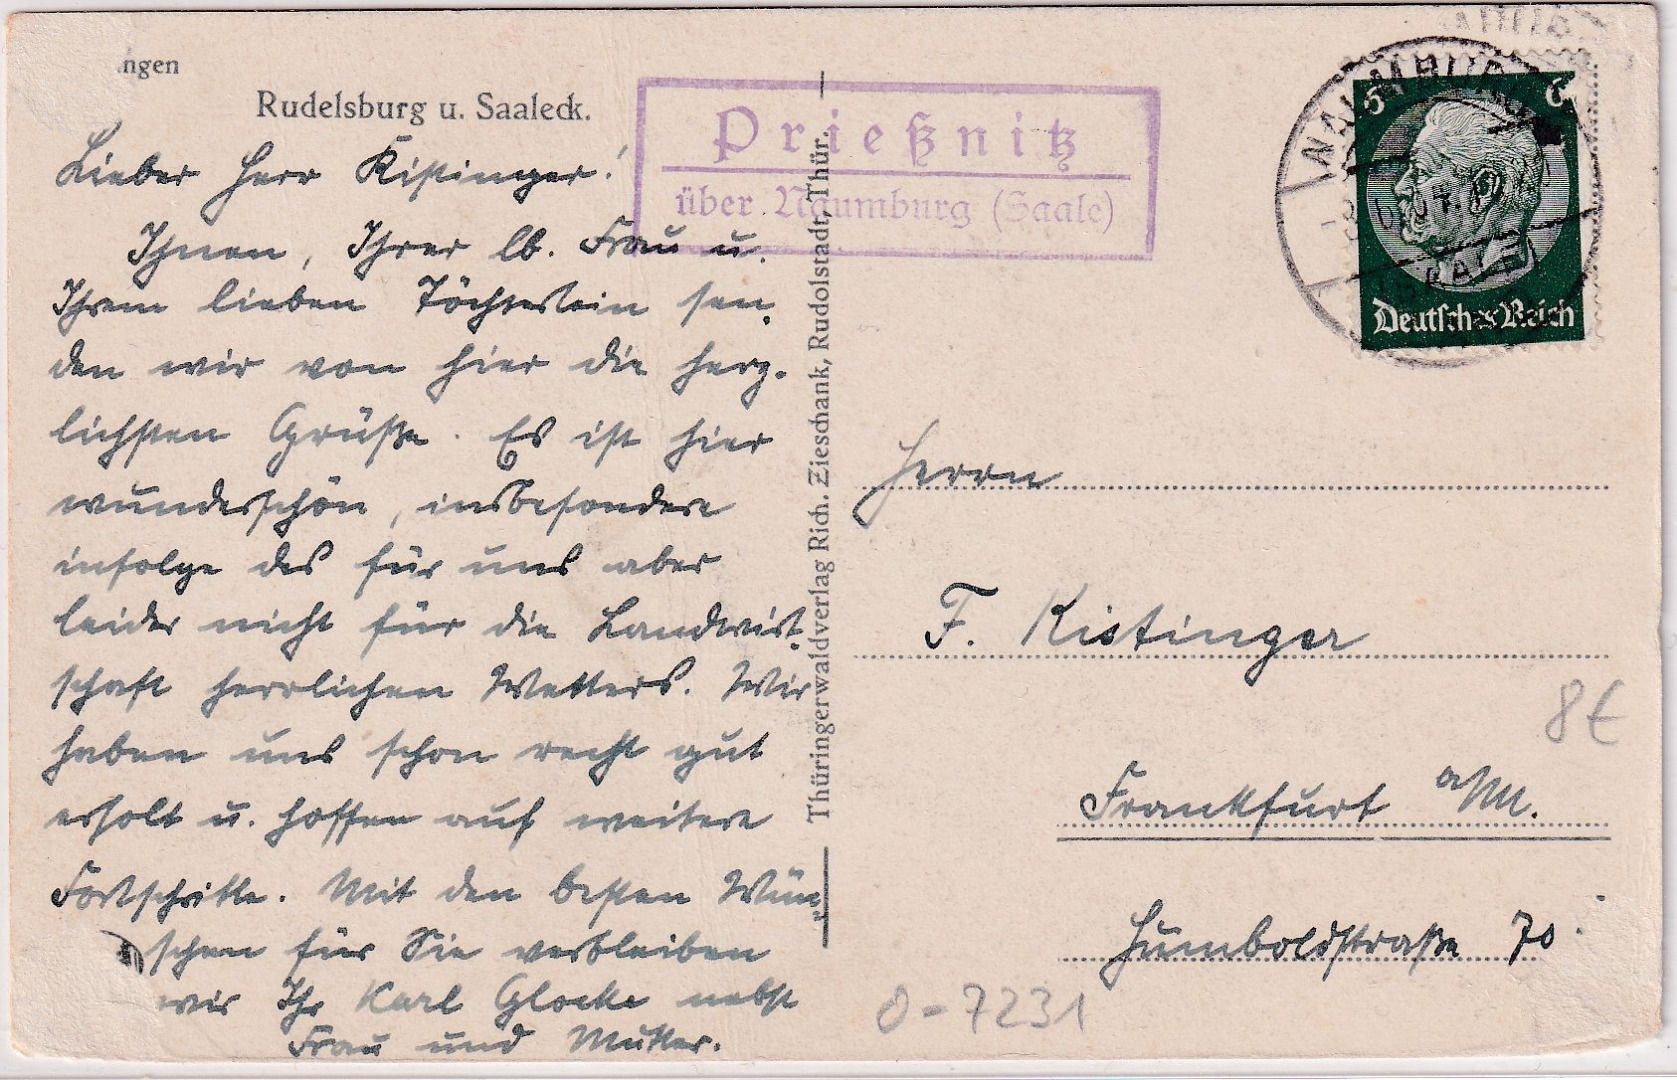 ngen
Rudelsburg u. Saaleck.
Lieber Herr Kistinger!
Ihnen, Ihrer lb. Frau u.
Ihrem lieben Töchterlein sen-
den wir von hier die herz-
lichsten Grüße. Es ist hier
wunderschön, insbesondere
infolge des für uns aber
leider nicht für die Landwirt-
schaft herrlichen Wetters. Wir
haben uns schon recht gut
erholt u. hoffen auf weitere
Fortschritte. Mit den besten Wün-
schen für Sie verbleiben
wir Ihr Karl Glocke nebst
Frau und Mutter.
Thüringerwaldverlag Rich. Zieschank, Rudolstadt, Thür.
Prießnitz
über Naumburg (Saale)
NAUMBURG
(SAALE)
6 6
Deutsches Reich
Herrn
F. Kistinger
Frankfurt a/M.
Humboldstraße 70
8€
0-7231